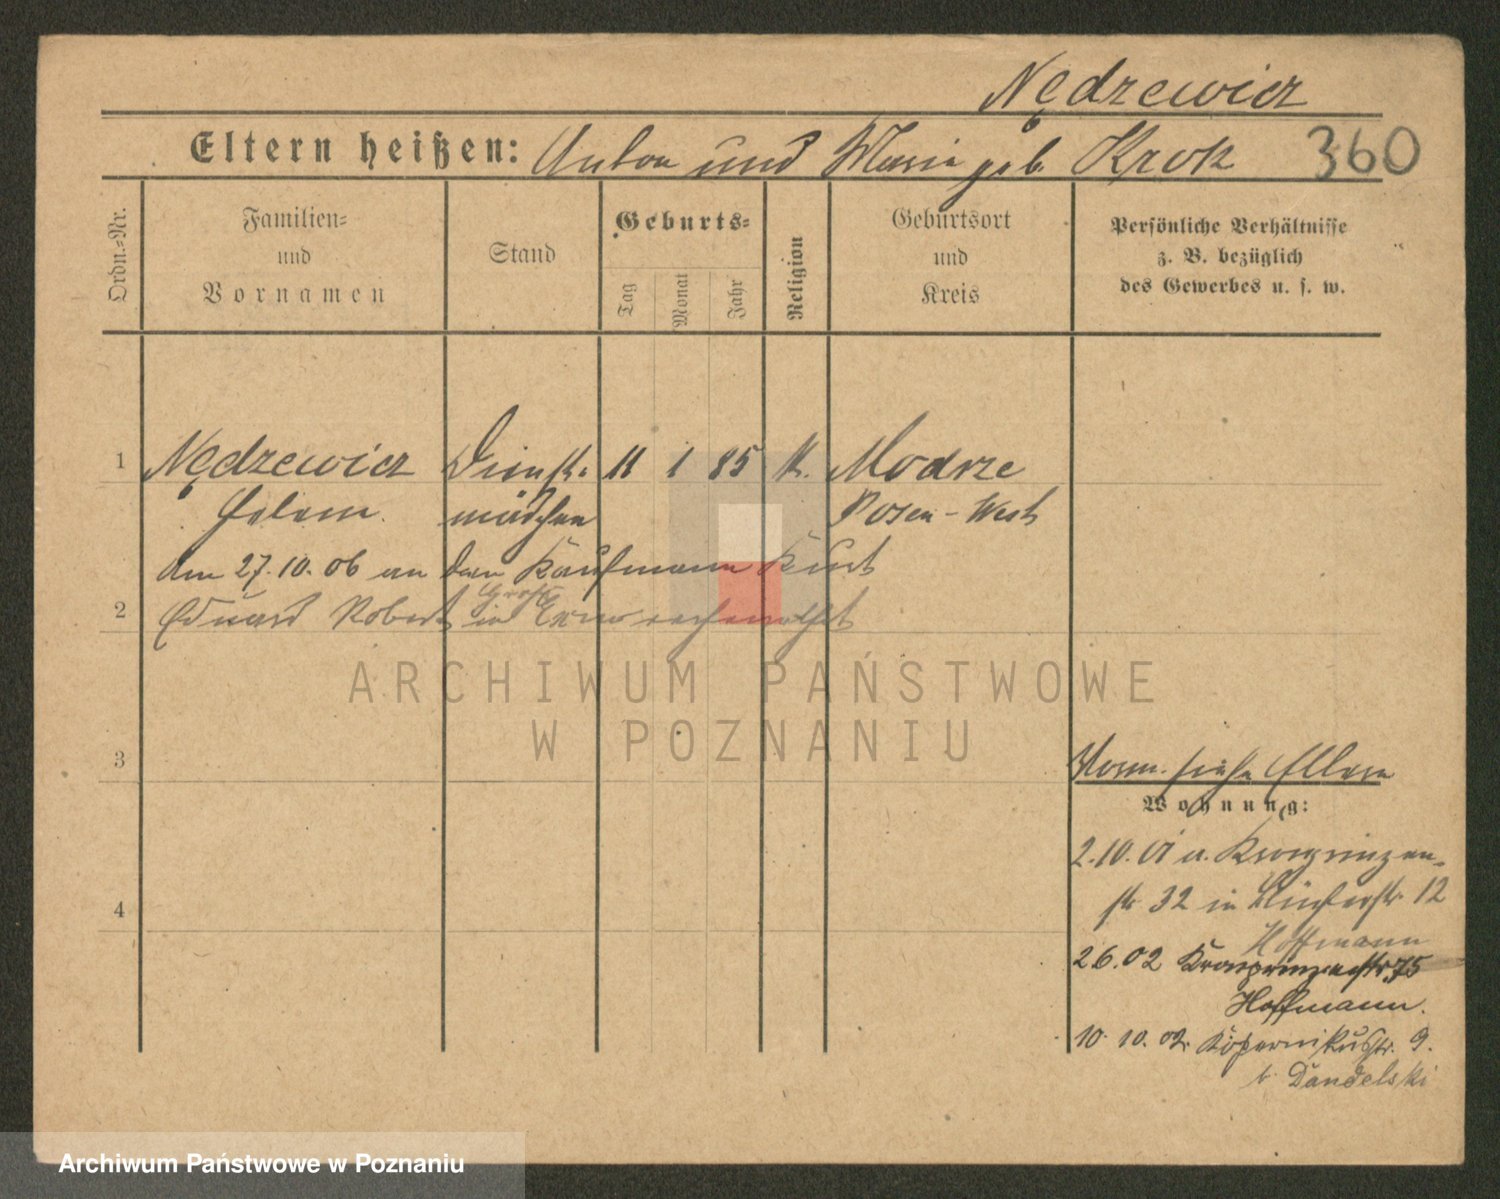 Nędzewicz
Eltern heißen: Anton und Marie geb. Krok 360
Ordn.=Nr.
Familien=
und
Vornamen
Stand
Geburts=
Tag
Monat
Jahr
Religion
Geburtsort
und
Kreis
Persönliche Verhältnisse
z. B. bezüglich
des Gewerbes u. s. w.
1 Nędzewicz Dienst= 11 1 85 K. Modrze
Helene mädchen Posen-West
den 27.10.06 an den Kaufmann Kurt
2 Eduard Robert in
3
4
Vorm. siehe Eltern
Wohnung:
2.10.01 a. Kronprinzen=
str. 32 in 12
Hoffmann
2 6.02 Kronprinzenstr. 75
Hoffmann.
10. 10. 02. Kopernikusstr. 9.
b. Dandelski
ARCHIWUM PAŃSTWOWE
W POZNANIU
Archiwum Państwowe w Poznaniu